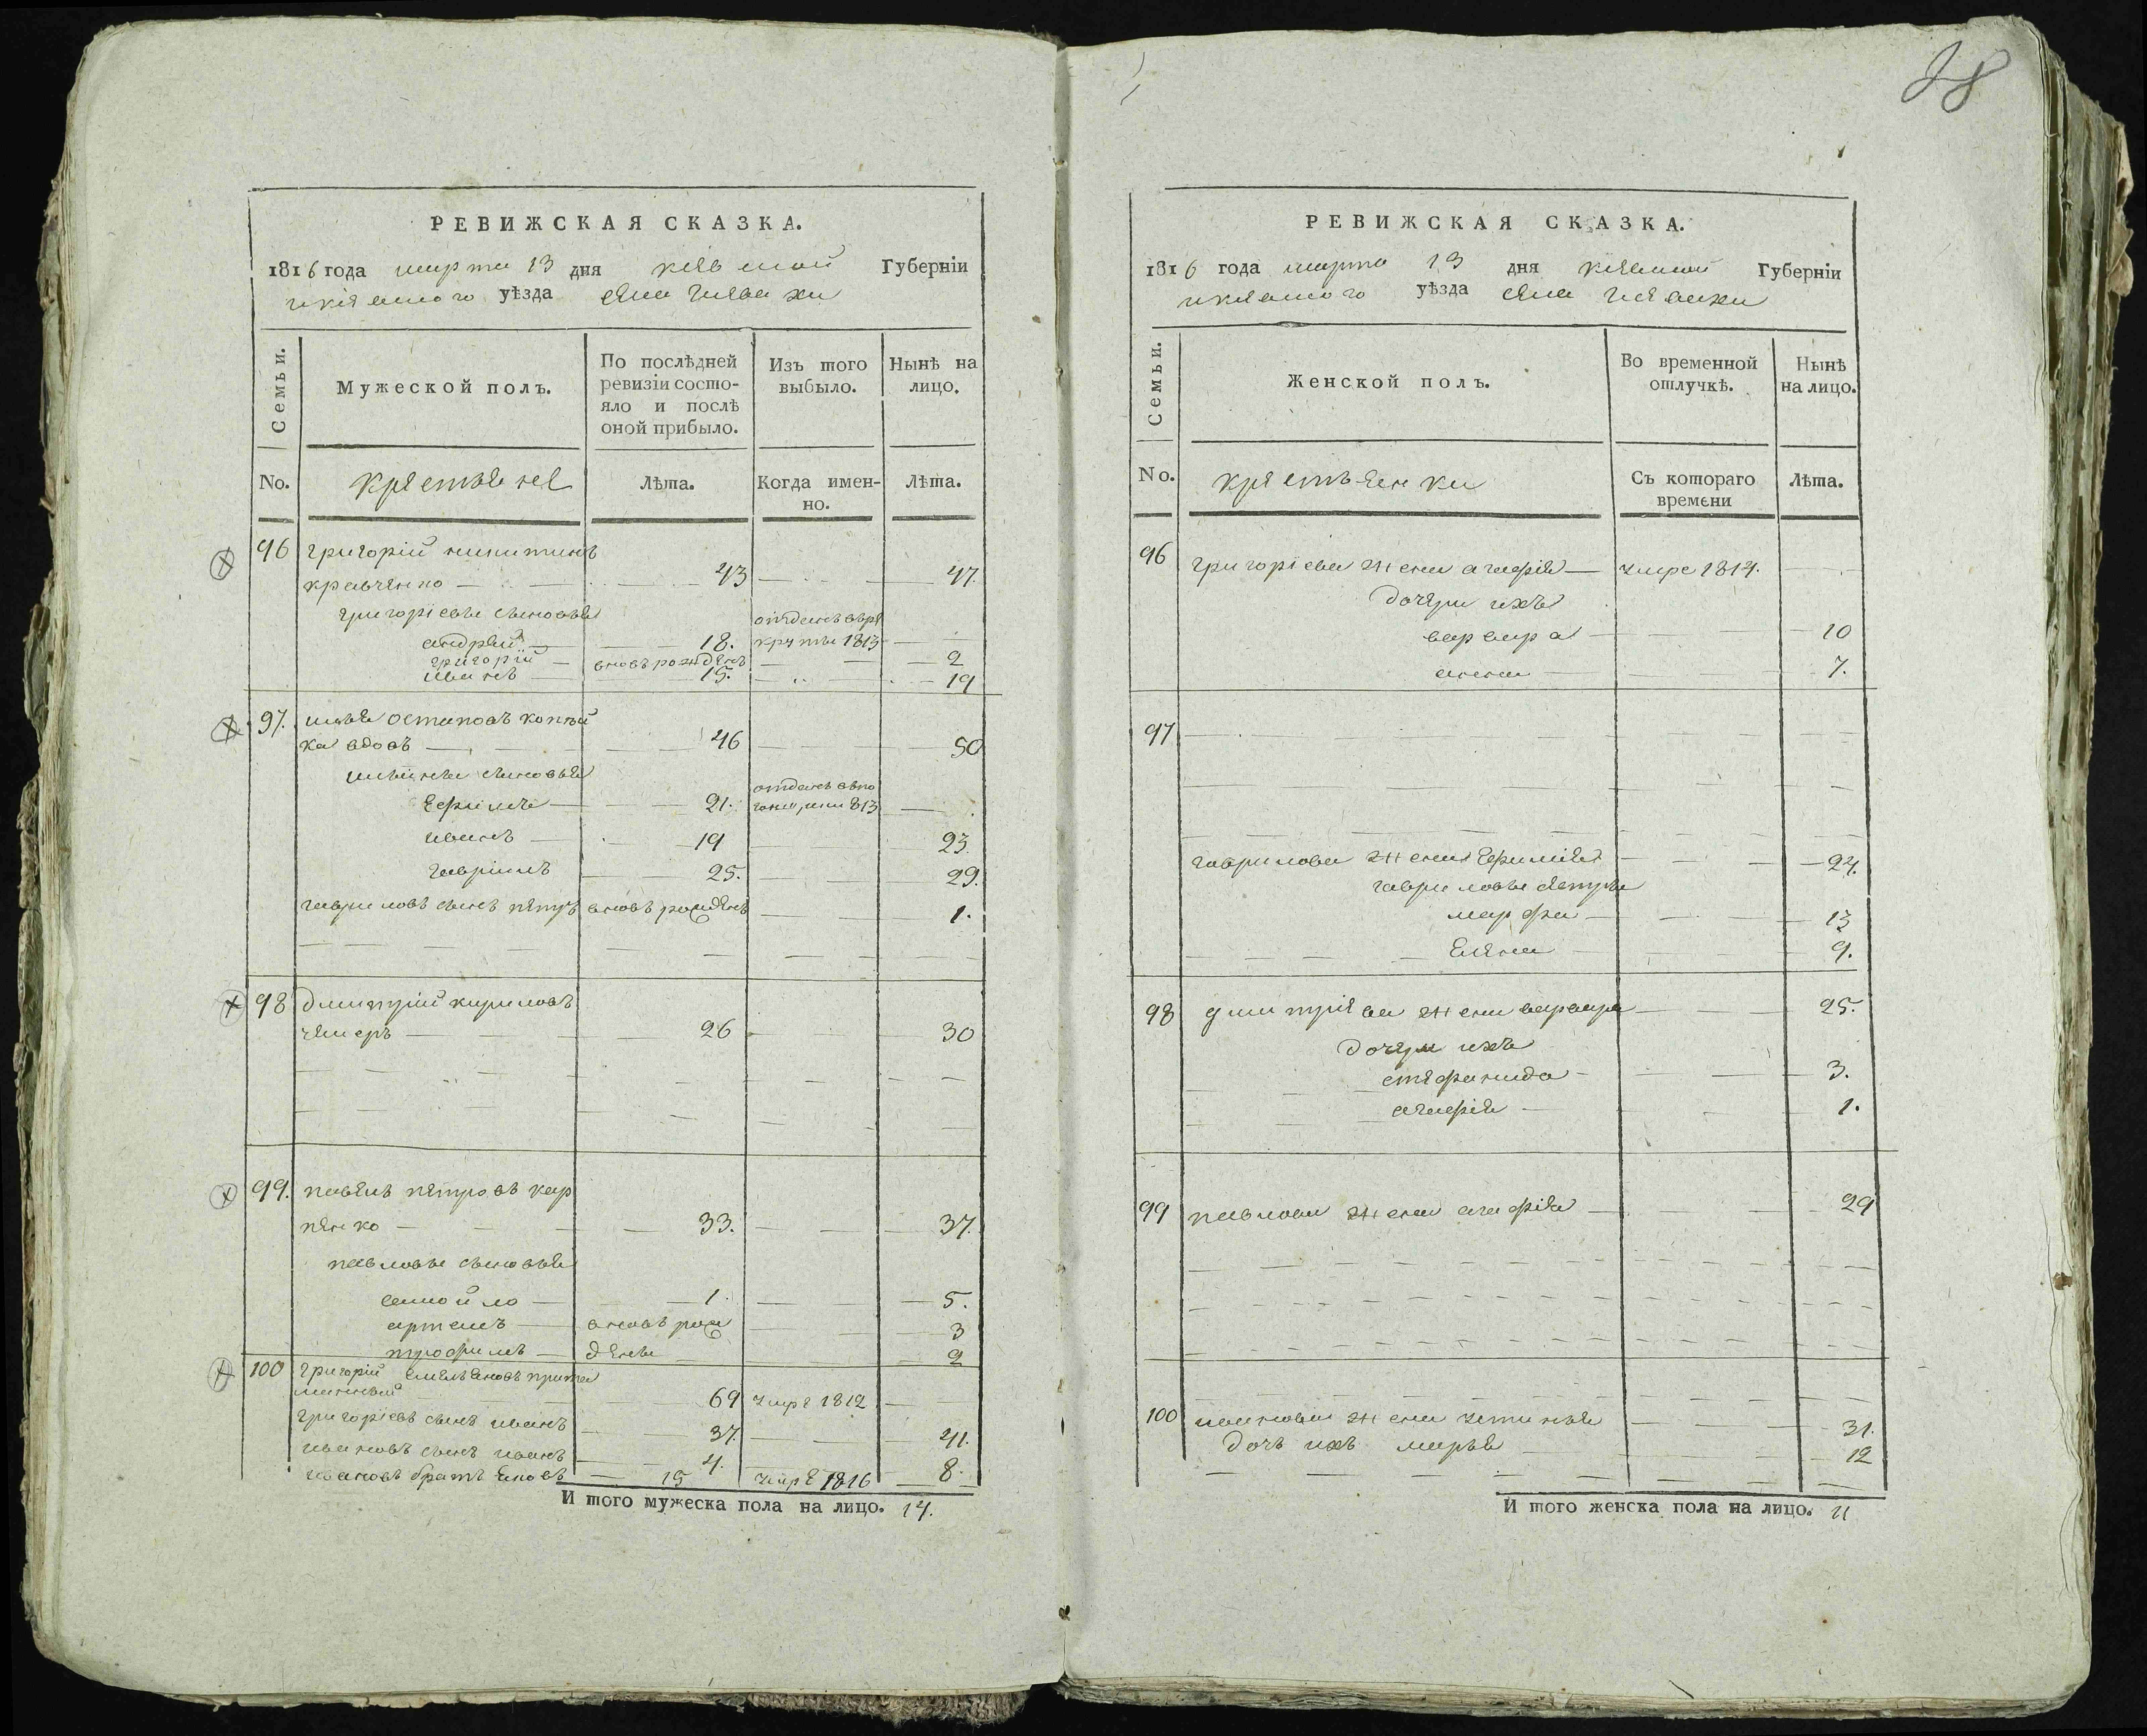 РЕВИЖСКАЯ СКАЗКА.
1816 года марта 13 дня Губерніи
уѣзда села
Семьи.
Мужеской полъ.
По послѣдней ревизіи состояло и послѣ оной прибыло.
Изъ того выбыло.
Нынѣ на лицо.
No.
крестьяне
Лѣта.
Когда именно.
Лѣта.
96 григорій никитинъ
кравченко 43 47.
григоріевы сыновья отданъ въ ре
андрей 18. круты 1813
григорій вновь рожденъ 2
иванъ 15. 19
97. илья остаповъ копѣй
ка вдовъ 46 50
ильины сыновья
Ефимъ 21. отданъ 813
иванъ 19 23.
гавріилъ 25. 29.
гавриловъ сынъ петръ вновь рожденъ 1.
98 дмитрій кириловъ
26 30
99. павелъ петровъ кар
пенко 33. 37.
павловы сыновья
самойло 1 5.
артемъ вновь рож 3
трофимъ дены 2
100 григорій Емельяновъ
69 умре 1812
григоріевъ сынъ иванъ 37. 41.
ивановъ сынъ иванъ 4. 8.
ивановъ братъ 15 умре 1816
И того мужеска пола на лицо. 14.
28
РЕВИЖСКАЯ СКАЗКА.
1816 года марта 13 дня Губерніи
уѣзда села
Семьи.
Женской полъ.
Во временной отлучкѣ.
Нынѣ на лицо.
No.
крестьянки
Съ котораго времени
Лѣта.
96 григоріева жена агафія умре 1814.
дочери ихъ
варвара 10
анна 7.
97
гаврилова жена Ефимія 24.
гавриловы сестры
марфа 13
Елена 9.
98 дмитріева жена варвара 25.
дочери ихъ
стефанида 3.
агафія 1.
99 павлова жена агафія 29
100 иванова жена устинья 31.
дочь ихъ марья 12
И того женска пола на лицо. 11